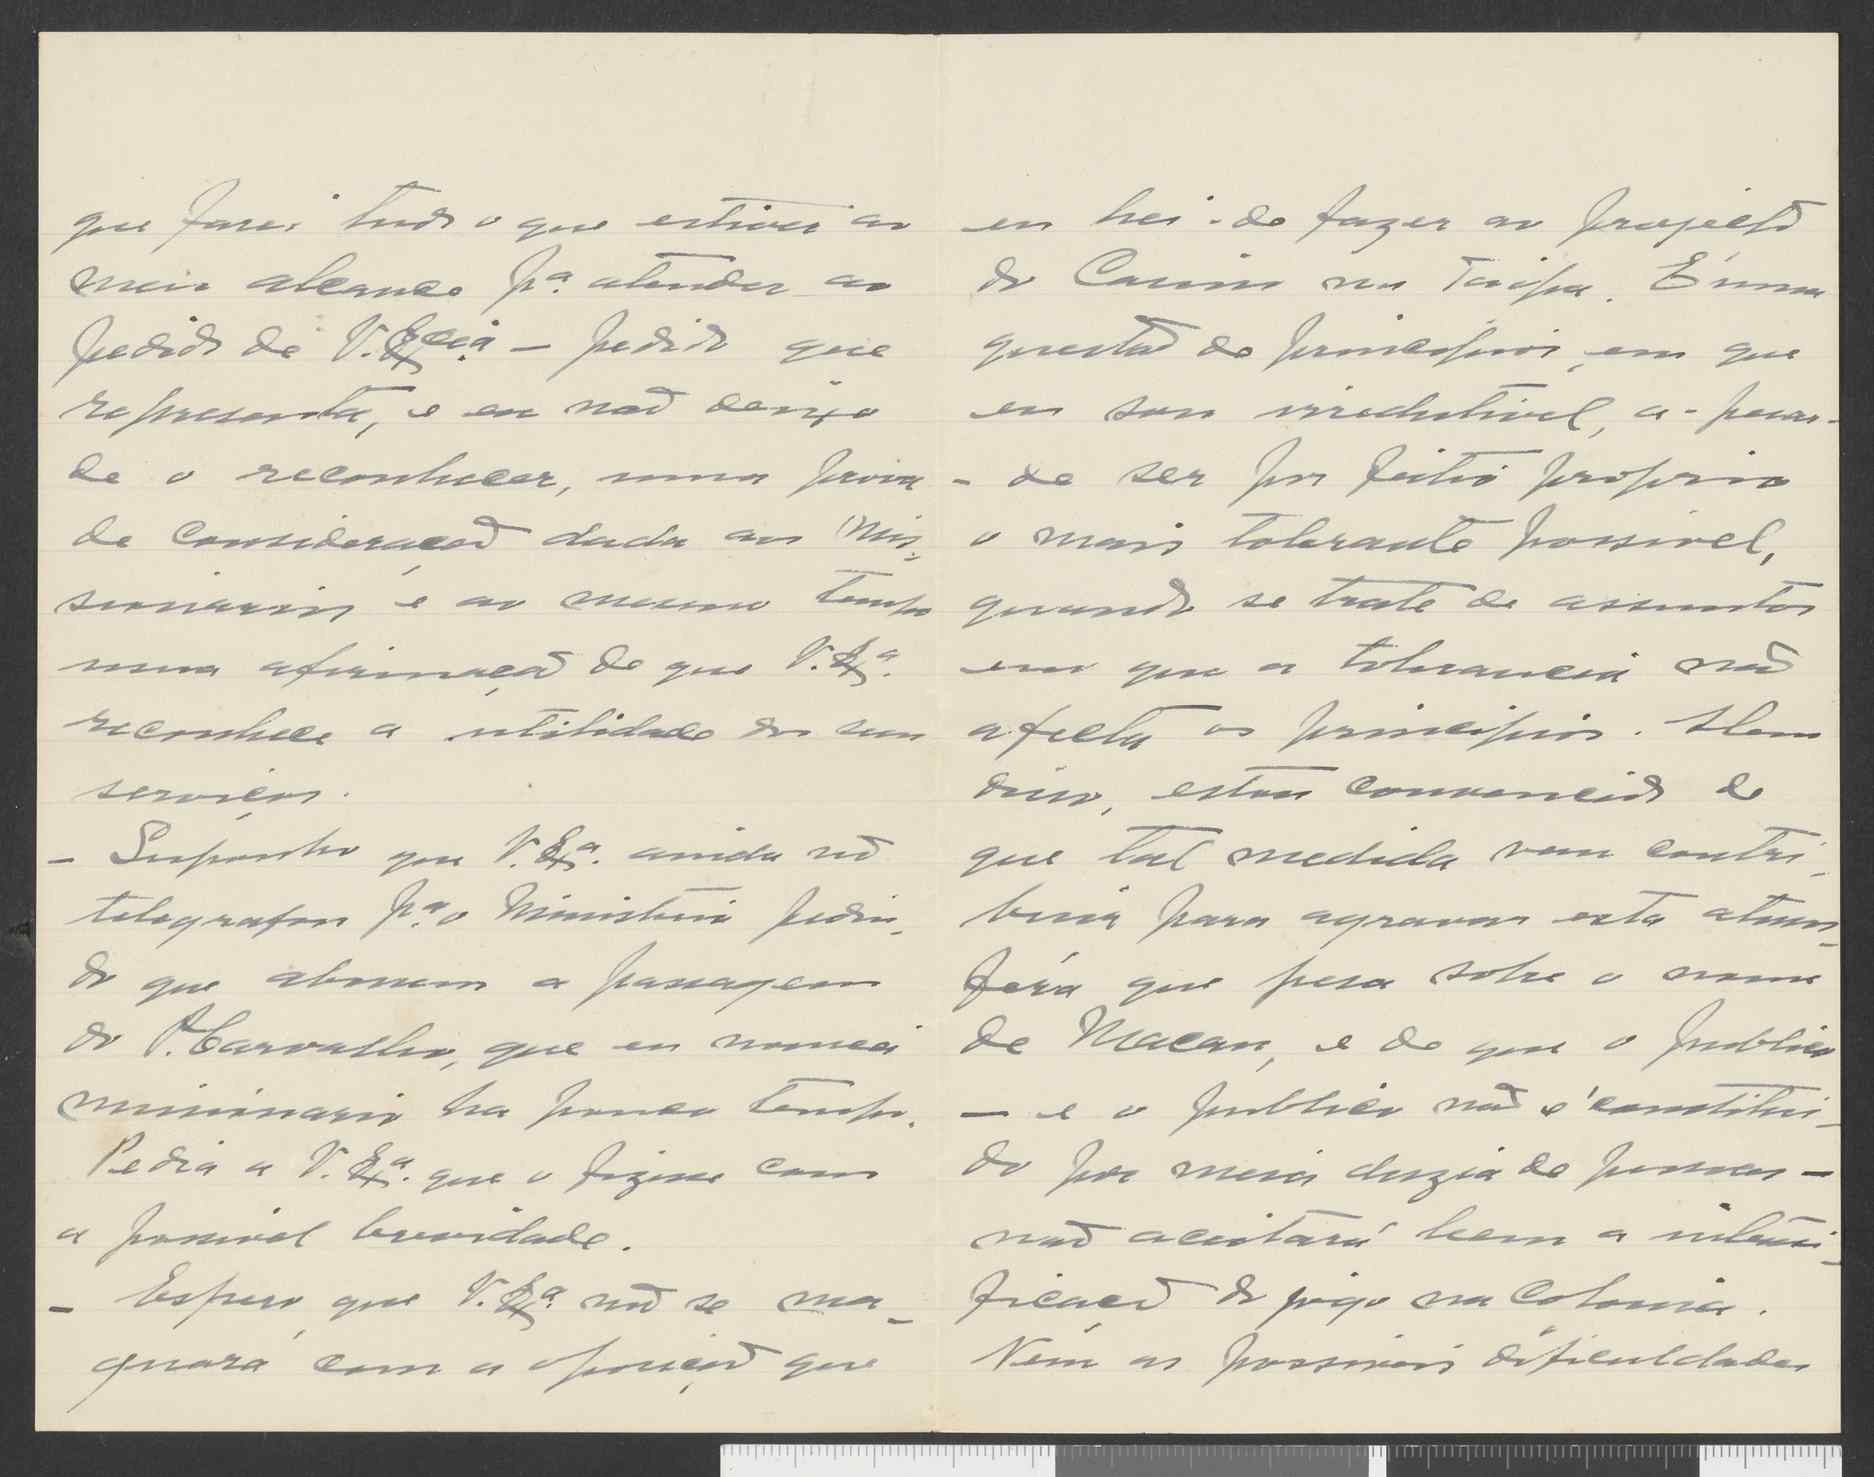 que farei tudo o que estiver ao
meu alcance pª. atender ao
pedido de V. Excia. — pedido que
representa, e eu não deixo
de o reconhecer, uma prova
de consideração dada aos Mis-
sionarios e ao mesmo tempo
uma afirmação de que V. Exª.
reconhece a utilidade dos seus
serviços.
– Suponho que V. Exª. ainda nã
telegrafou pª. o Ministerio pedin-
do que abonem a passagem
do P. Carvalho, que eu nomeei
missionario ha pouco tempo.
Pedia a V. Exª. que o fizesse com
a possivel brevidade.
– Espero que V. Exª. não se ma-
guará com a oposição que
eu hei-de fazer ao projecto
do Casino na Taipa. É uma
questão de principios, em que
eu sou irredutivel, a-pesar-
-de ser por feitio proprio
o mais tolerante possivel,
quando se trate de assuntos
em que a tolerancia não
afecta os principios. Alem
disso, estou convencido de
que tal medida vem contri-
buir para agravar esta atmos-
féra que pesa sobre o nome
de Macau, e de que o publico
— e o publico não é constitui-
do por meia duzia de pessoas —
não aceitará bem a intensi-
ficação do jogo na Colonia.
Nem as possiveis dificuldades